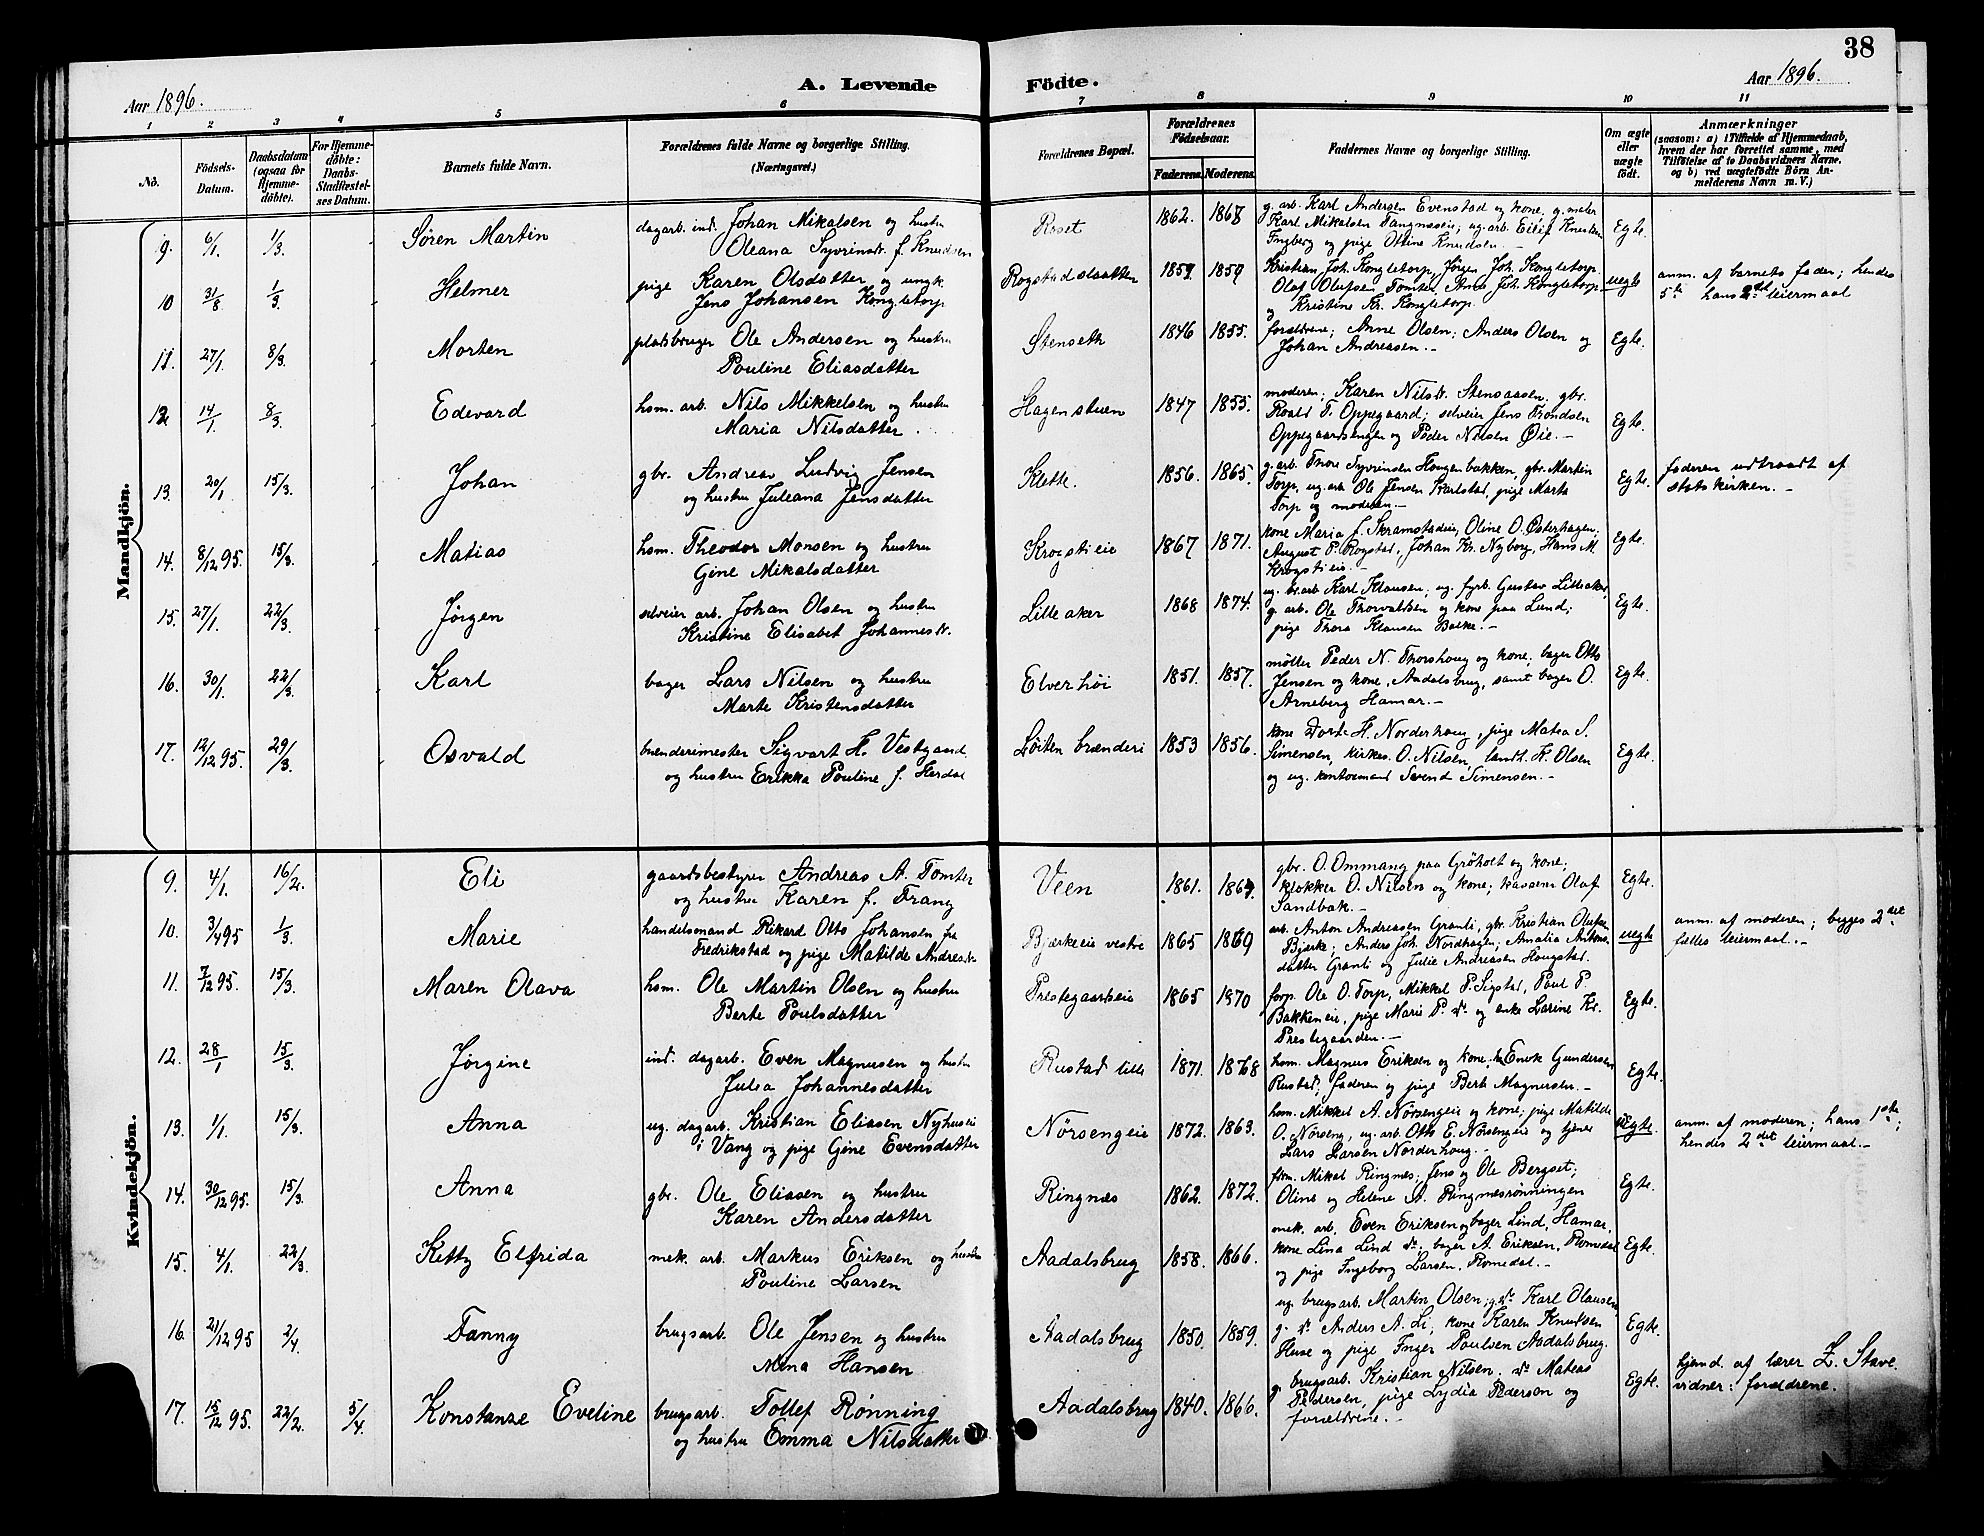 38
Aar 1896.
A. Levende
Födte.
Aar 1896.
1 2 3 4 5 6 7 8 9 10 11
No.
Födsels-Datum.
Daabsdatum (ogsaa for Hjemme-döbte).
For Hjemme-döbte: Daabs-Stadfæstel-ses Datum.
Barnets fulde Navn.
Forældrenes fulde Navne og borgerlige Stilling. (Næringsvei.)
Forældrenes Bopæl.
Forældrenes Födselsaar.
Faderens. Moderens.
Faddernes Navne og borgerlige Stilling.
Om ægte eller uægte födt.
Anmærkninger
(saasom: a) i Tilfælde af Hjemmedaab, hvem der har forrettet samme, med Tilföielse af to Daabsvidners Navne, og b) ved uægtefödte Börn An-melderens Navn m. V.)
Mandkjön.
9. 6/1. 1/3. Søren Martin dagarb. ind. Johan Mikalsen og hustru
Oleana Syverinsdr. f. Knudsen
Roset 1862. 1868 g. arb. Karl Andersen Evenstad og kone, g. maler
Karl Mikalsen Tangnæsseie; ug. arb. Eilif Knutsen
Ingberg og pige Otline Knudsen. Egte.
10 31/8. 1/3. Helmer pige Karen Olsdatter og ungk.
Jens Johansen Kongletorp
Rogstadslaatten 1859 1859 Kristian Joh. Kongletorp, Jørgen Joh. Kongletorp
Olaf Olufsen Tomter, Anne Joh. Kongletorp
og Kristine Kr. Kongletorp. uegte
anm. af barnets fader; hendes
5te hans 2det leiermaal
11. 27/1. 8/3. Morten pladsbruger Ole Andersen og hustru
Pouline Eliasdatter
Stenseth 1846 1855. forældrene; Anne Olsen; Anders Olsen og
Johan Andreasen.- Egte.
12 14/1. 8/3. Edevard hsm. arb. Nils Mikkelsen og hustru
Maria Nilsdatter.
Hagenstuen 1847 1855. moderen; Karen Nilsdr. Stensaasen, gbr.
Roald T. Oppegaard; selveier Jens Trondsen
Oppegaardsengen og Peder Nilsen Øie.- Egte.
13. 20/1. 15/3. Johan gbr. Andreas Ludvig Jensen
og hustru Juleana Jensdatter
Klette. 1856. 1865. g. arb. Thore Syverinsen Haugenbakken, gbr. Martin
Torp, ug. arb. Ole Jensen Karlstad, pige Marta
Torp og moderen.- Egte.
faderen udtraadt af
statskirken.-
14. 8/12 95. 15/3. Matias hsm. Theodor Monsen og hustru
Gine Mikalsdatter
Krogstieie 1867 1871. kone Maria f. Skramstadeie, Oline O. Østerhagen
August P. Rogstad, Johan Kr. Nyborg, Hans M.
Krogstieie.- Egte.
15. 27/1. 22/3. Jørgen selveier arb. Johan Olsen og hustru
Kristine Elisabet Johannesdr.
Lilleaker 1868 1874. ug. br. arb. Karl Klausen, ug. fyrb. Gustav Lilleaker,
g. arb. Ole Thorvaldsen og kone paa Lund;
pige Thora Klausen Balke.- Egte.
16. 30/1. 22/3. Karl bager Lars Nilsen og hustru
Marte Kristensdatter
Elverhöi 1851. 1857. møller Peder N. Thorshaug og kone; bager Otto
Jensen og kone, Aadalsbrug, samt bager O.
Arneberg Hamar.- Egte.
17. 12/12 95. 29/3. Osvald brænderimester Sigvart H. Vestgaard
og hustru Erikka Pouline f. Herdal
Løiten brænderi 1853 1856. kone Dorte H. Norderhaug, pige Matea S.
Simensen, kirkes. O. Nilsen, landh. K. Olsen
og ug. kontormand Svend Simensen.- Egte.
Kvindekjön.
9. 4/1. 16/2. Eli gaardsbestyrer Andreas A. Tomter
og hustru Karen f. Frang
Veen 1861. 1864. gbr. O. Ommang paa Grøholt og kone;
klokker O. Nilsen og kone; kasserer Olaf
Sandbæk.- Egte.
10. 3/4 95 1/3. Marie handelsmand Rikard Otto Johansen fra
Fredrikstad og pige Matilde Andreasdr.
Bjærkeeie vestre 1865 1869 arb. Anton Andreassen Granli, gbr. Kristian Olufsen
Bjærke; Anders Joh. Nordhagen; Amalia Antons-
datter Granli og Julie Andreassen Haugstad. uegte
anm. af moderen; begges 2det
fælles leiermaal.-
11. 7/12 95. 15/3. Maren Olava hsm. Ole Martin Olsen og hustru
Berte Poulsdatter
Prestegaardseie 1865 1870 forp. Ole O. Torp, Mikkel P. Sigstad, Paul P.
Bakkeneie, pige Marie P. do og enke Larine Kr.
Prestegaarden.- Egte.
12. 28/1 15/3. Jørgine ind. dagarb. Even Magnussen og hustru
Julia Johannesdatter
Rustad lille 1871. 1868 hsm. Magnus Eriksen og kone; Enok Gundersen
Rustad; faderen og pige Berte Magnussen.- Egte.
13. 1/1. 15/3. Anna ug. dagarb. Kristian Eliasen Nyhuseie
i Vang og pige Gine Evensdatter
Nörsengeie 1872. 1863. hsm. Mikkel A. Nörsengeie og kone; pige Matilde
O. Nörseng, ug. arb. Otto E. Nörsengeie og tjener
Lars Larsen Norderhaug.- uegte.
anm. af moderen; hans 1ste;
hendes 2det leiermaal.-
14. 30/12 95. 15/3. Anna gbr. Ole Eliasen og hustru
Karen Andersdatter
Ringnæs 1862. 1872. frm. Mikal Ringnæs; Jens og Ole Bergset;
Oline og Helene A. Ringnæsrønningen Egte.
15. 4/1. 22/3. Ketty Elfrida mek. arb. Markus Eriksen og hustru
Pouline Larsen
Aadalsbrug 1858. 1866. mek. arb. Even Eriksen og bager Lind, Hamar,
kone Lina Lind do, bager A. Eriksen, Romedal
og pige Ingeborg Larsen, Romedal.- Egte.
16. 21/12 95 2/4. Fanny brugsarb. Ole Jensen og hustru
Mina Hansen
Aadalsbrug 1850. 1859. ug. brugsarb. Martin Olsen; g. do Karl Olausen,
g. do Anders A. Li; kone Karen Knudsen
Huse og pige Inger Poulsen Aadalsbrug. Egte.
17. 15/12 95. 22/2. 5/4. Konstanze Eveline brugsarb. Tollef Rønning
og hustru Emma Nilsdatter
Aadalsbrug 1840. 1866. g. brugsarb. Kristian Nilsen, do Mateas
Pedersen, pige Lydia Pederson og
forældrene.- Egte.
hjemd. af lærer Z. Stave.
vidner: forældrene.